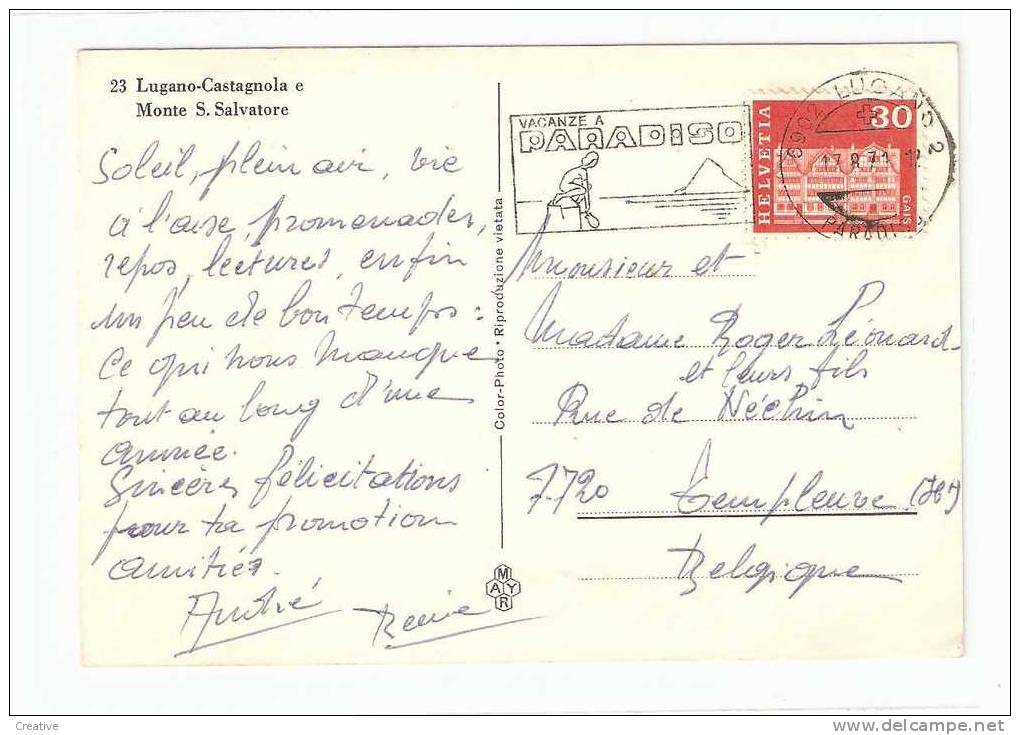 23 Lugano-Castagnola e
Monte S. Salvatore
Soleil, plein air, vie
à l'aise, promenades,
repos, lectures, enfin
un peu de bon temps :
Ce qui nous manque
tout au long d'une
année.
Sincères félicitations
pour ta promotion
amitiés.
André
Color-Photo • Riproduzione vietata
MAYR
VACANZE A
PARADISO
HELVETIA
30
GAIS
6902 LUGANO 2
17.8.71 12
PARADISO
Monsieur et
Madame Roger Léonard
et leurs fils
Rue de Néchin
7720 Templeuve (Ht)
Belgique
Creative
http://www.delcampe.net